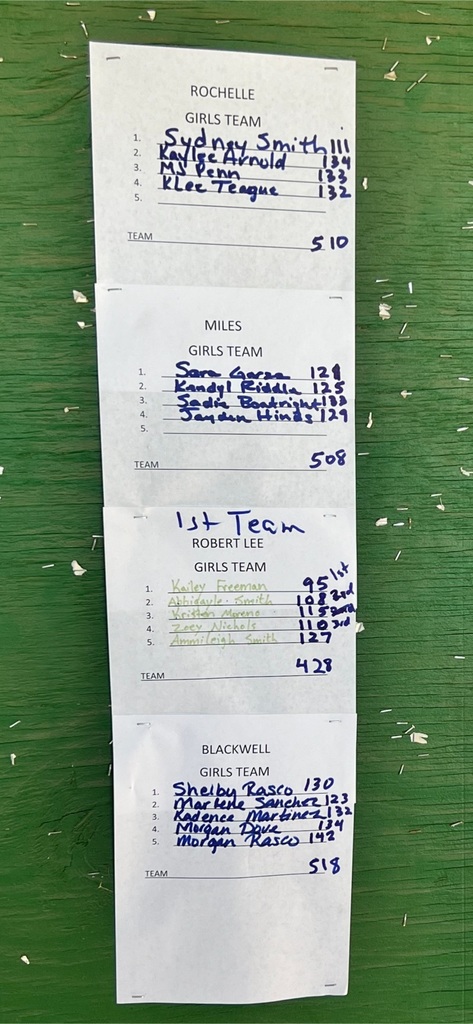 ROCHELLE
GIRLS TEAM
1. Sydney Smith 111
2. Kaylee Arnold 134
3. MJ Penn 133
4. KLee Teague 132
5.
TEAM 510
MILES
GIRLS TEAM
1. Sara Garza 121
2. Kandyl Riddle 125
3. Sadie Boatright 133
4. Jayden Hinds 129
5.
TEAM 508
1st Team
ROBERT LEE
GIRLS TEAM
1. Kailey Freeman 95 1st
2. Abbigayle Smith 108 2nd
3. Kristen Moreno 115
4. Zoey Nichols 110 3rd
5. Ammileigh Smith 127
TEAM 428
BLACKWELL
GIRLS TEAM
1. Shelby Rasco 130
2. Marlene Sanchez 123
3. Kadence Martinez 132
4. Morgan Dove 134
5. Morgan Rasco 142
TEAM 518